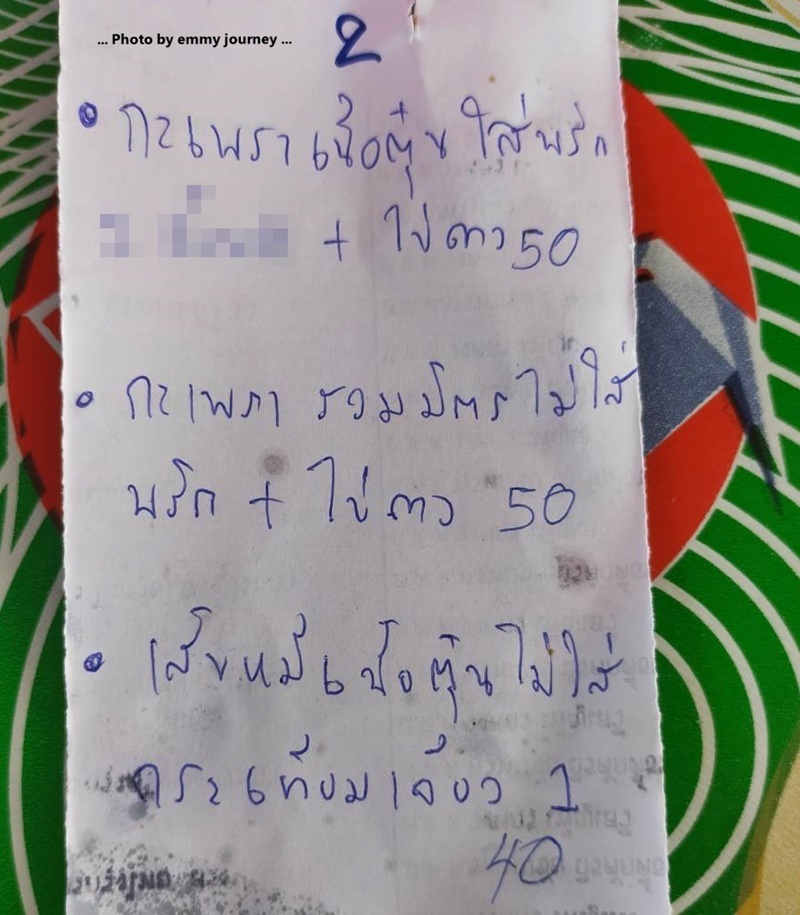 ... Photo by emmy journey ...
2
กะเพราเนื้อตุ๋น ใส่พริก
+ ไข่ดาว 50
กะเพรา รวมมิตร ไม่ใส่
พริก + ไข่ดาว 50
เส้นหมี่เนื้อตุ๋นไม่ใส่
กระเทียมเจียว 1
40